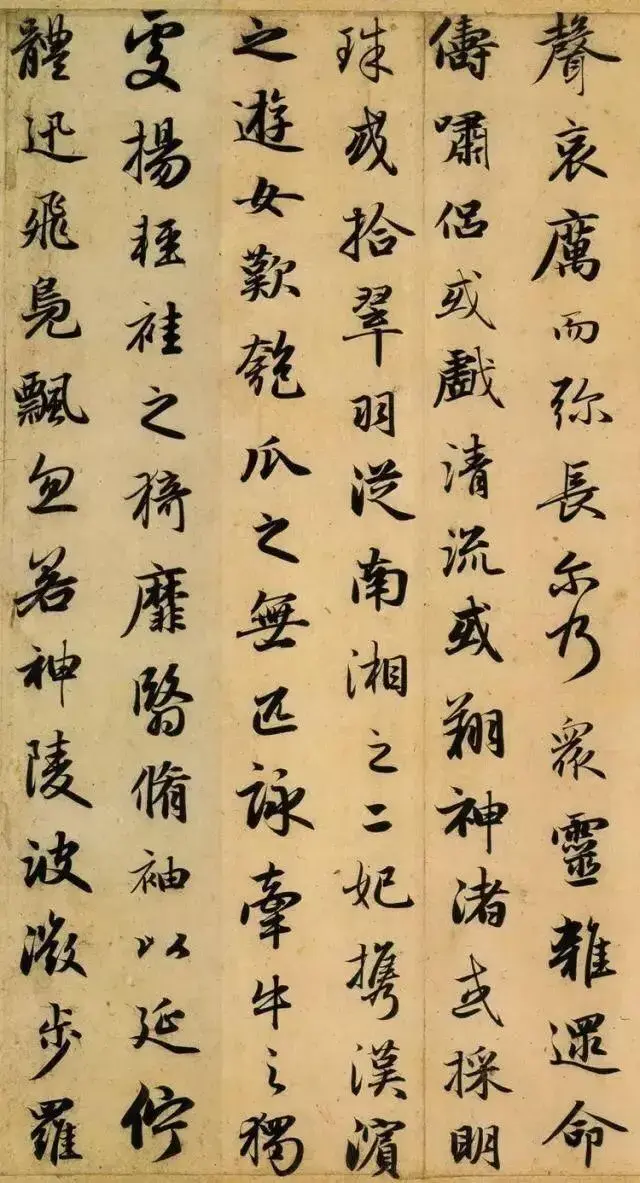 聲哀厲而弥長尒乃眾靈雜遝命
儔嘯侶或戲清流或翔神渚或採明
珠或拾翠羽從南湘之二妃攜漢濱
之遊女歎匏瓜之無匹詠牽牛之獨
處揚輕袿之猗靡翳脩袖以延佇
體迅飛鳧飄忽若神陵波微步羅